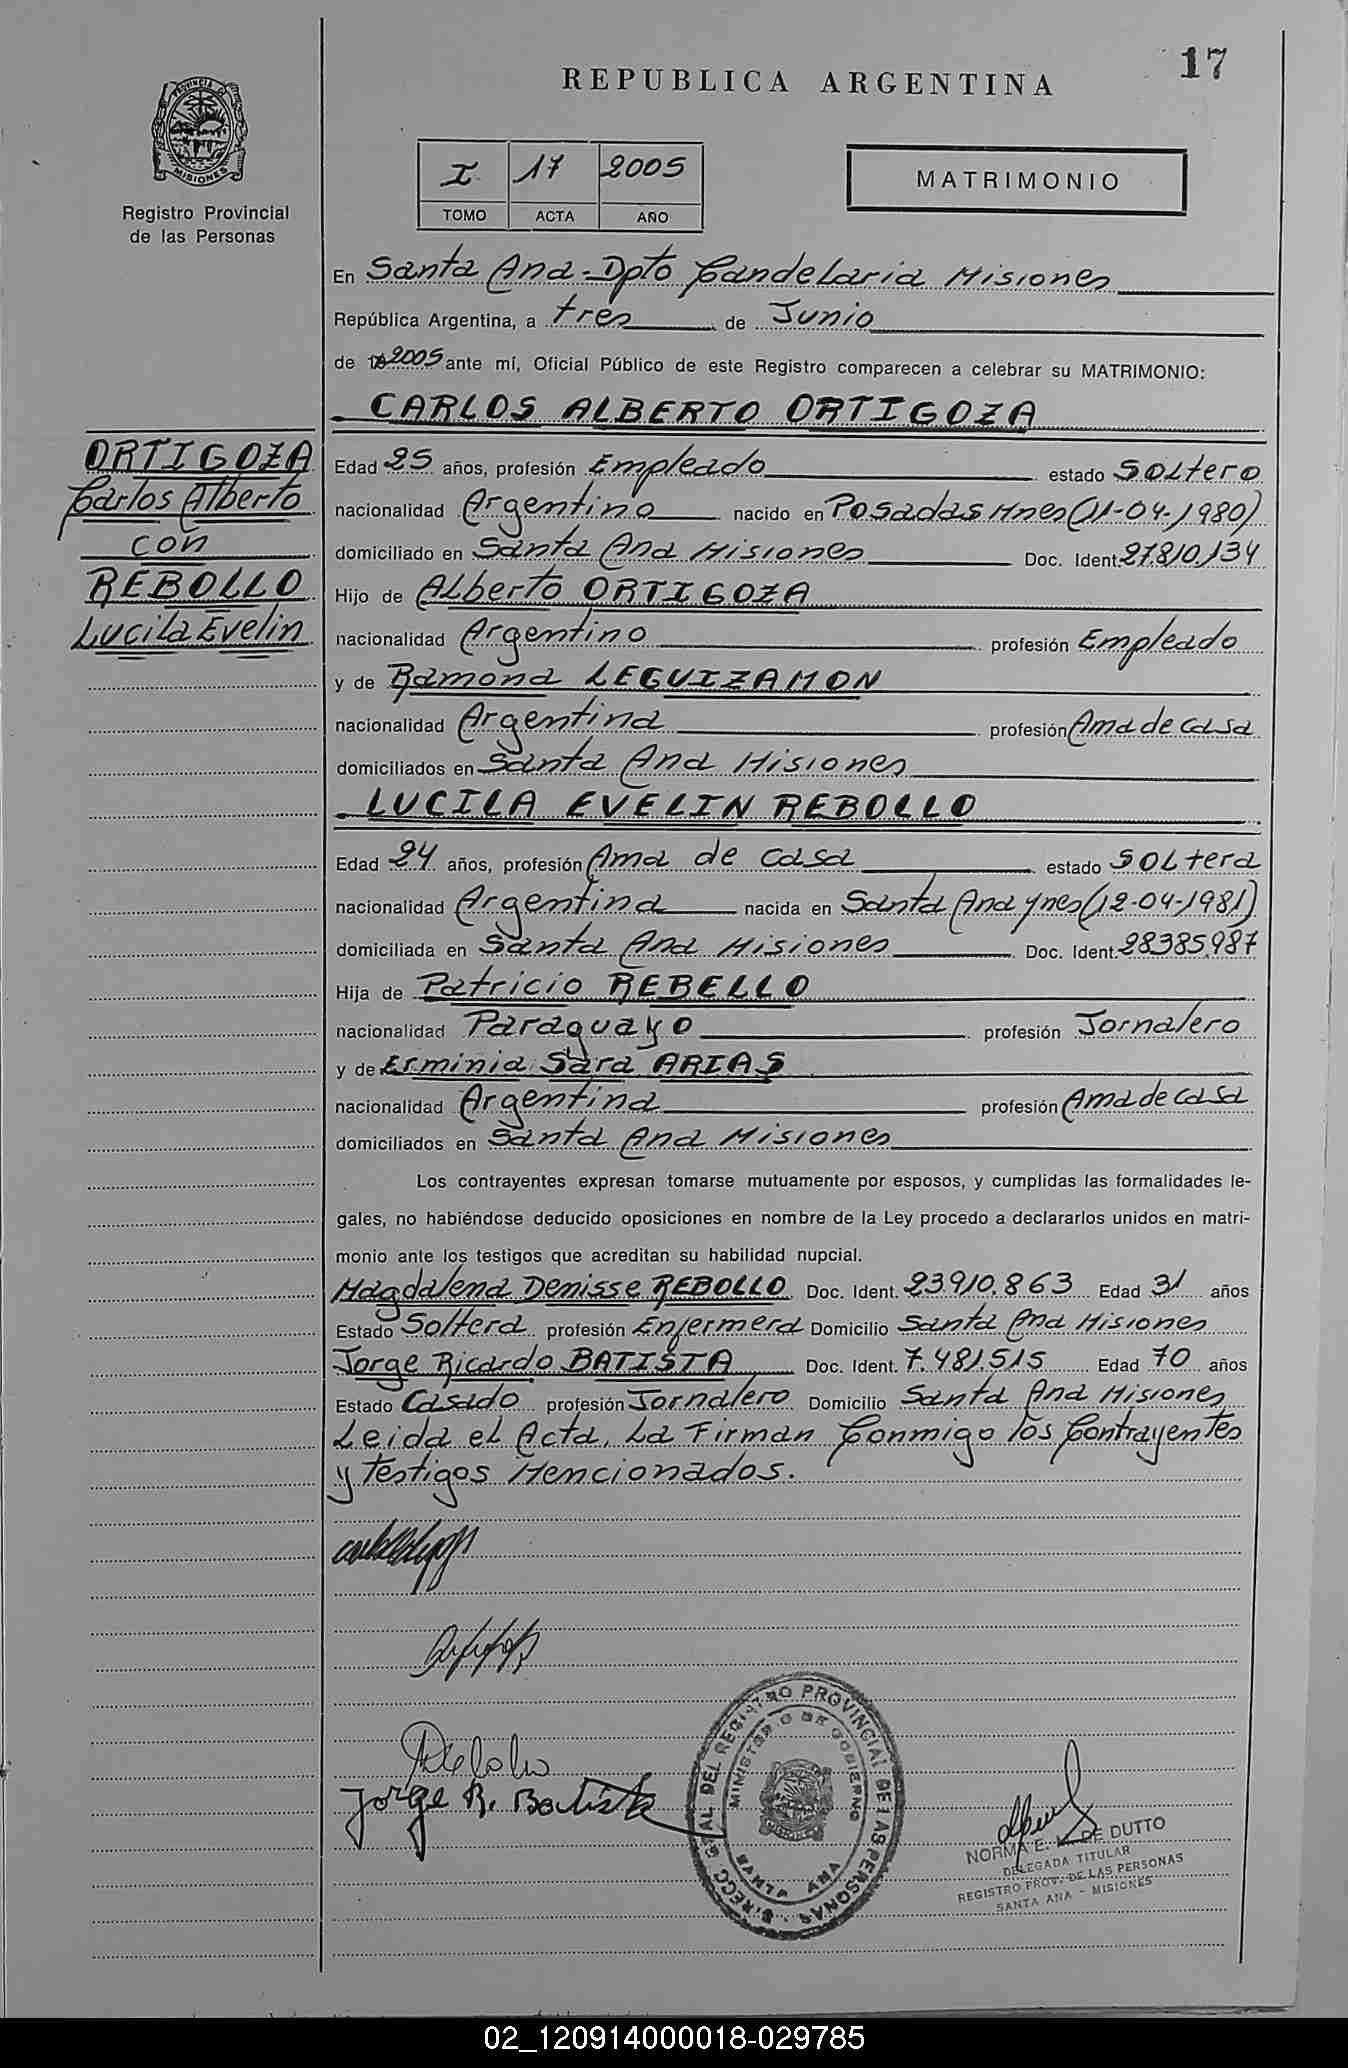 17
REPUBLICA ARGENTINA
PROVINCIA DE
MISIONES
Registro Provincial
de las Personas
I 17 2005
TOMO ACTA AÑO
MATRIMONIO
En Santa Ana-Dpto Candelaria Misiones
República Argentina, a tres de Junio
de 2005 ante mí, Oficial Público de este Registro comparecen a celebrar su MATRIMONIO:
CARLOS ALBERTO ORTIGOZA
ORTIGOZA
Carlos Alberto
con
REBOLLO
Lucila Evelin
Edad 25 años, profesión Empleado estado Soltero
nacionalidad Argentino nacido en Posadas Mnes (11-04-1980)
domiciliado en Santa Ana Misiones Doc. Ident. 27.810.134
Hijo de Alberto ORTIGOZA
nacionalidad Argentino profesión Empleado
y de Ramona LEGUIZAMON
nacionalidad Argentina profesión Ama de casa
domiciliados en Santa Ana Misiones
LUCILA EVELIN REBOLLO
Edad 24 años, profesión Ama de casa estado Soltera
nacionalidad Argentina nacida en Santa Ana Mnes (12-04-1981)
domiciliada en Santa Ana Misiones Doc. Ident. 28385.987
Hija de Patricio REBELLO
nacionalidad Paraguayo profesión Jornalero
y de Erminia Sara ARIAS
nacionalidad Argentina profesión Ama de casa
domiciliados en Santa Ana Misiones
Los contrayentes expresan tomarse mutuamente por esposos, y cumplidas las formalidades le-
gales, no habiéndose deducido oposiciones en nombre de la Ley procedo a declararlos unidos en matri-
monio ante los testigos que acreditan su habilidad nupcial.
Magdalena Denisse REBOLLO Doc. Ident. 23.910.863 Edad 31 años
Estado Soltera profesión Enfermera Domicilio Santa Ana Misiones
Jorge Ricardo BATISTA Doc. Ident. 7.481.515 Edad 70 años
Estado Casado profesión Jornalero Domicilio Santa Ana Misiones
Leida el Acta, La Firman Conmigo los Contrayentes
y Testigos Mencionados.
Jorge R. Batista
DEL REGISTRO PROVINCIAL DE LAS PERSONAS
MINISTERIO DE GOBIERNO
SANTA ANA
NORMA E. DE DUTTO
DELEGADA TITULAR
REGISTRO PROV. DE LAS PERSONAS
SANTA ANA - MISIONES
02_120914000018-029785